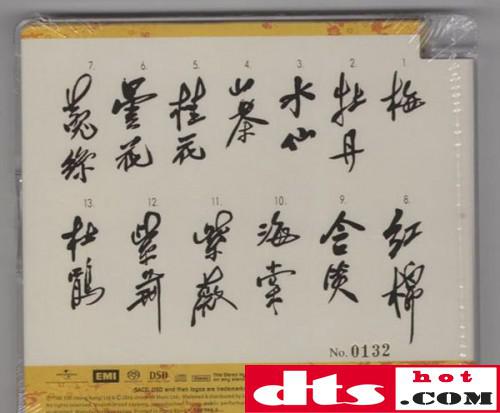 1. 梅
2. 牡丹
3. 水仙
4. 山茶
5. 桂花
6. 曇花
7. 菟絲
8. 紅棉
9. 含笑
10. 海棠
11. 紫薇
12. 紫荊
13. 杜鵑
No. 0132
EMI
DSD
SACD, DSD and their logos are trademarks
hot
dts
.com